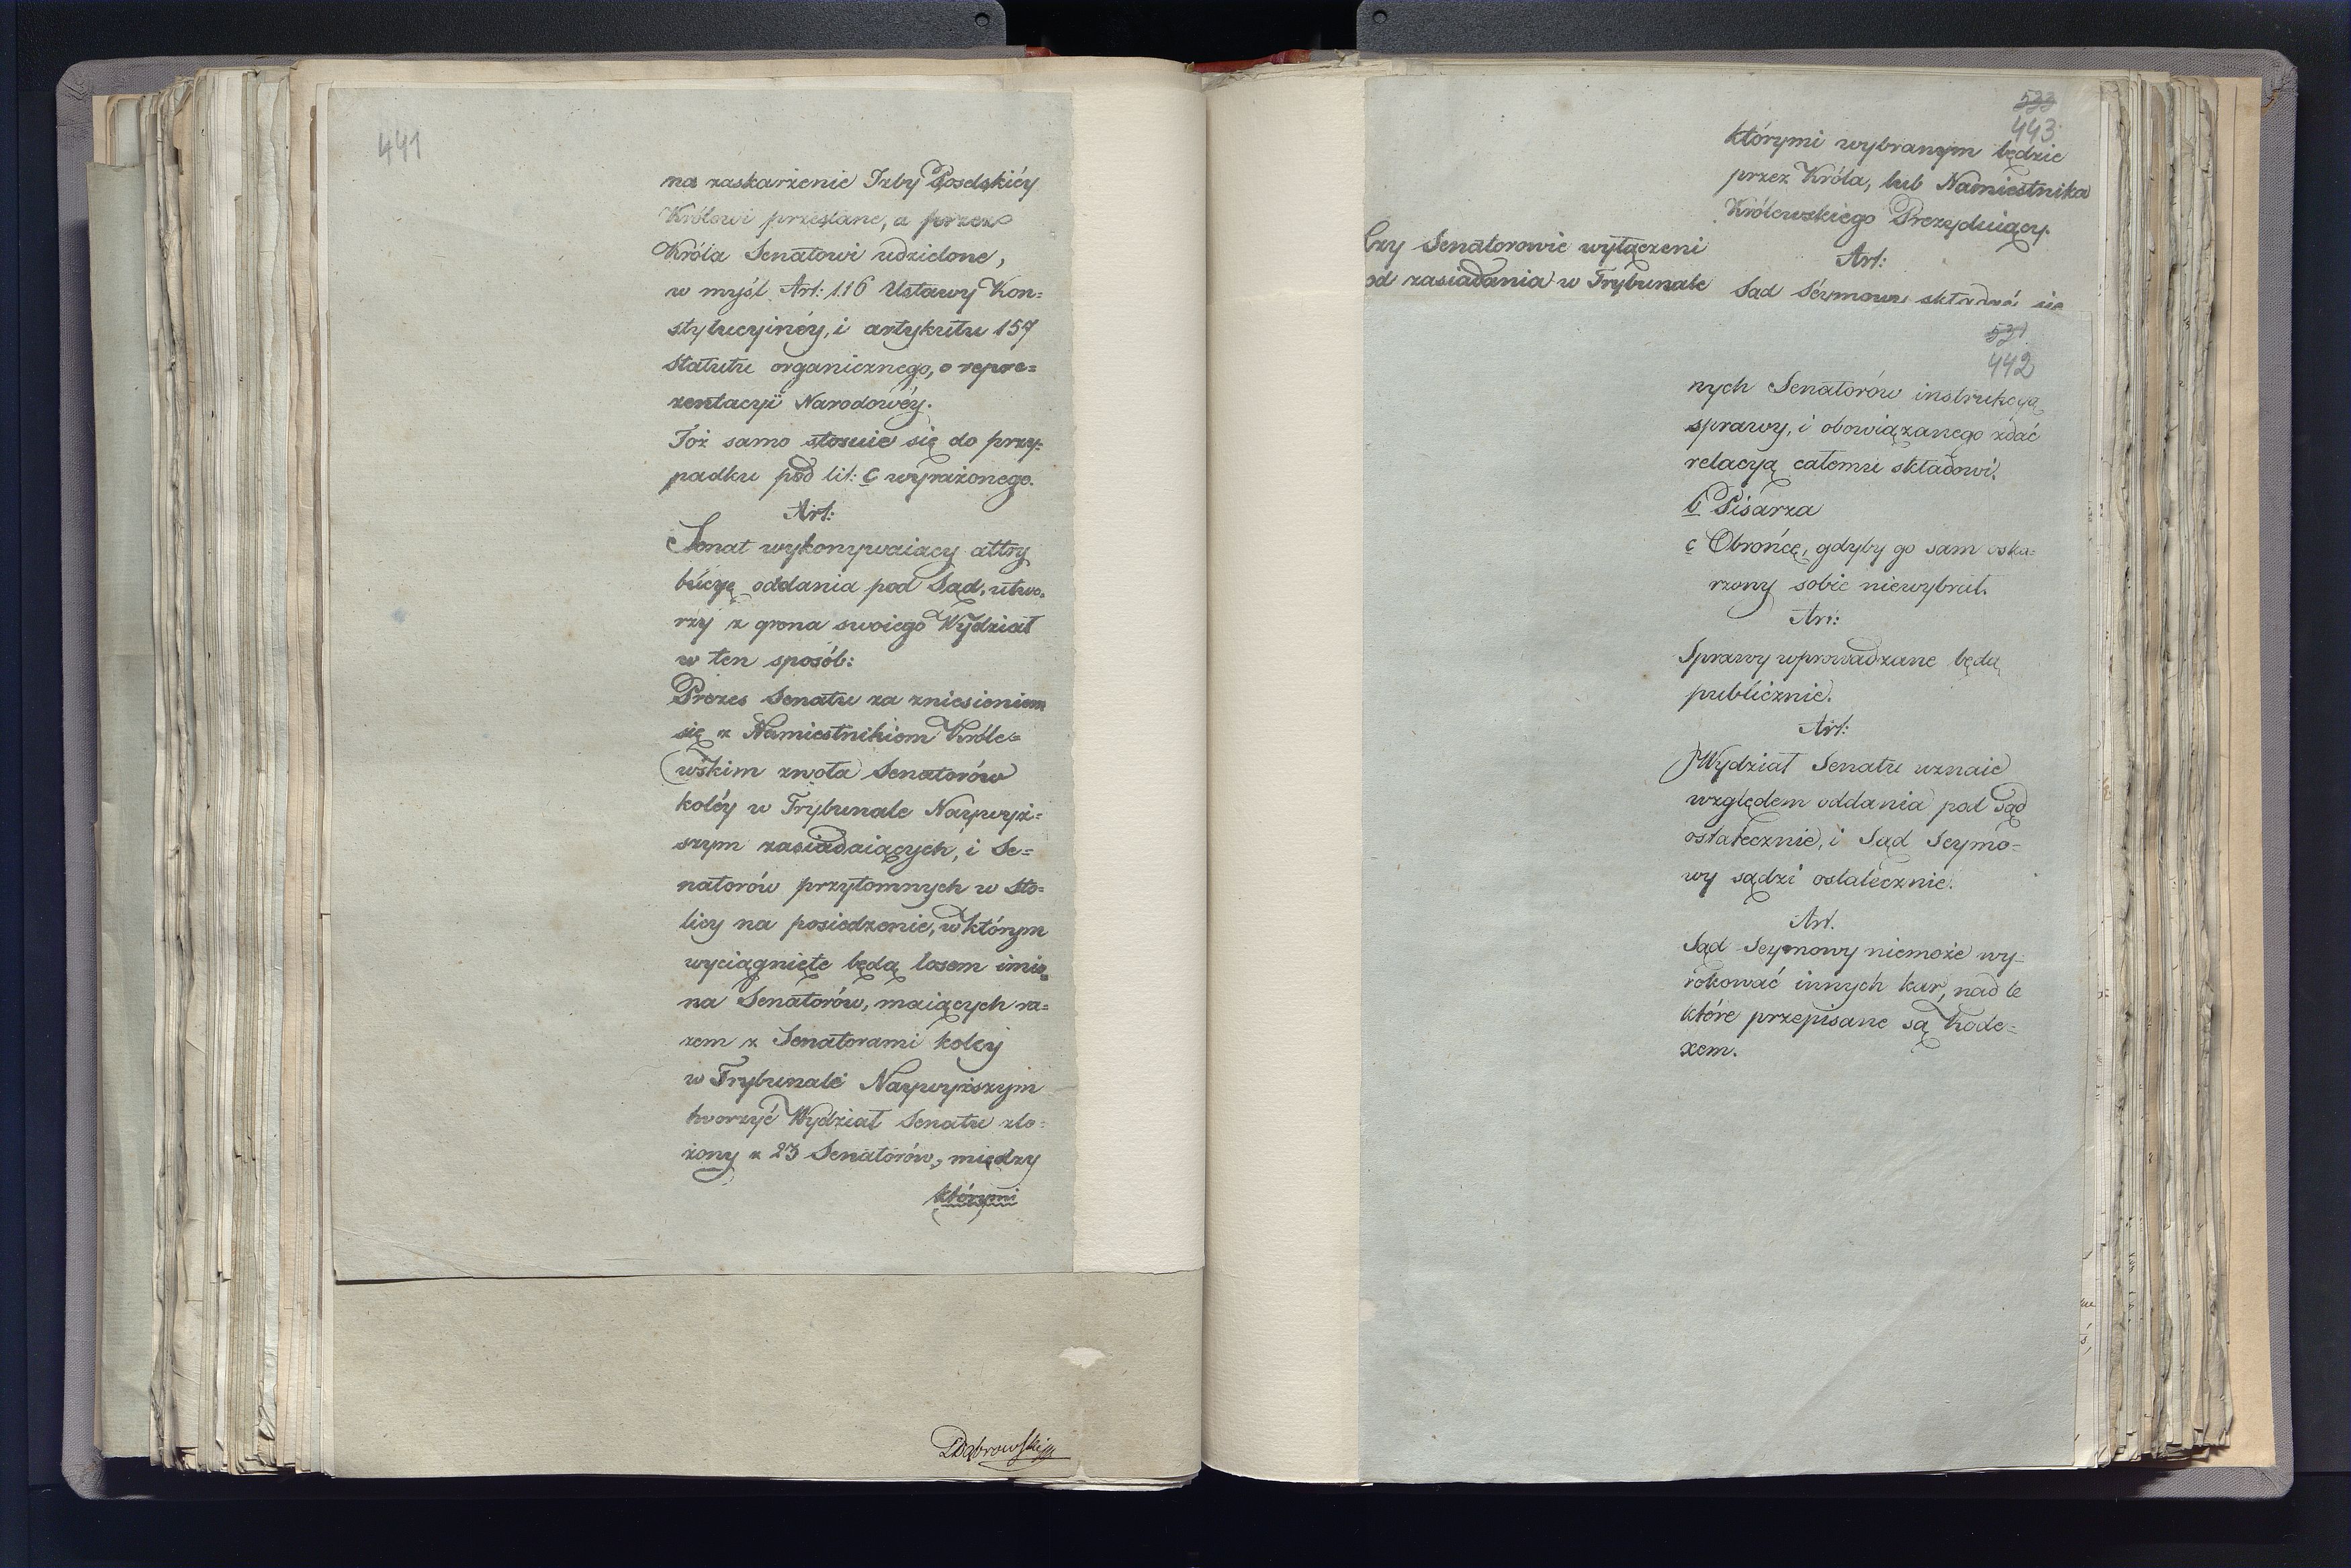 441
na zaskarżenie Izby Poselskiéy
Królowi przesłane, a przez
Króla Senatowi udzielone,
w myśl Art: 116 Ustawy Kon=
stytucyinéy, i artykułu 157
Statutu organicznego, o repre=
zentacyi Narodowéy.
Toż samo stosuie się do przy=
padku pod lit: c wyrażonego.
Art:
Senat wykonywaiący attry
bucyę oddania pod Sąd, utwo=
rzy z grona swoiego Wydział
w ten sposób:
Prezes Senatu za zniesieniem
się z Namiestnikiem Króle=
wskim zwoła Senatorów
koléy w Trybunale Naywyż=
szym zasiadaiących, i Se=
natorów przytomnych w Sto=
licy na posiedzenie, w którym
wyciągnięte będą losem imio=
na Senatorów, maiących ra=
zem z Senatorami koley
w Trybunale Naywyższym
tworzyć Wydział Senatu zło=
żony z 23 Senatorów, między
którymi
Dąbrowski
533
443
którymi wybranym będzie
przez Króla, lub Namiestnika
Królewskiego Prezyduiący.
Czy Senatorowie wyłączeni
od zasiadania w Trybunale
Art:
Sąd Séymowy składać się
531
442
nych Senatorów instrukcyą
sprawy, i obowiązanego zdać
relacyą całemu składowi.
b Pisarza
c Obrońcę, gdyby go sam oska=
rzony sobie niewybrał.
Art:
Sprawy wprowadzane będą
publicznie.
Art:
Wydział Senatu uznaie
względem oddania pod Sąd
ostatecznie, i Sąd Seymo=
wy sądzi ostatecznie.
Art.
Sąd Seymowy niemoże wy=
rokować innych kar, nad te
które przepisane są Kode=
xem.